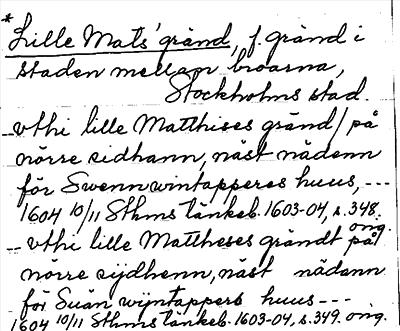 * Lille Mats' gränd, f. gränd i
staden mellan broarna,
Stockholms stad.
vthi lille Matthises gränd / på
nörre sidhann, näst nädenn
för Swenn wintapperes huus, ---
1604 10/11 Sthms tänkeb. 1603-04, s. 348.
orig.
-- vthi lille Mattheses grändt på
nörre sijdhenn, näst nädann
för Suän wijntappers huus ---
1604 10/11 Sthms tänkeb. 1603-04, s. 349. orig.